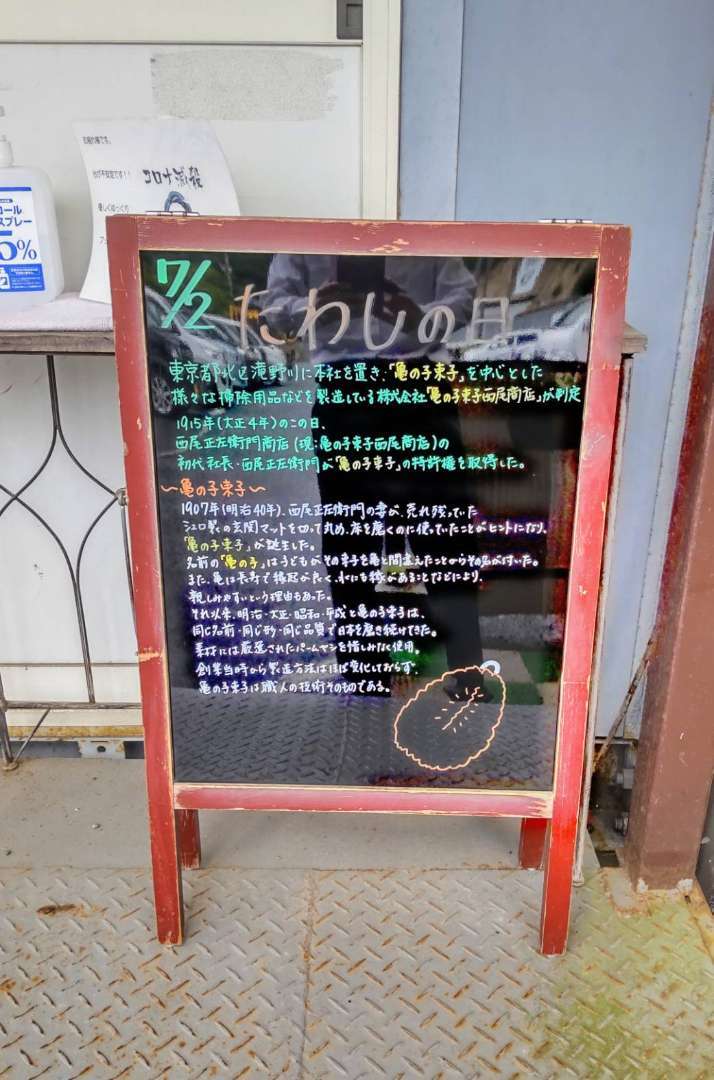 コロナ滅殺
ール
スプレー
5%
7/2 たわしの日
東京都北区滝野川に本社を置き、「亀の子束子」を中心とした
様々な掃除用品などを製造している株式会社「亀の子束子西尾商店」が制定
1915年(大正4年)のこの日、
西尾正左衛門商店(現:亀の子束子西尾商店)の
初代社長・西尾正左衛門が「亀の子束子」の特許権を取得した。
～亀の子束子～
1907年(明治40年)、西尾正左衛門の妻が、売れ残っていた
シュロ製の玄関マットを切って丸め、床を磨くのに使っていたことがヒントになり、
「亀の子束子」が誕生した。
名前の「亀の子」は子どもがその束子を亀と間違えたことからその名が付いた。
また、亀は長寿で縁起が良く、水にも縁があることなどにより、
親しみやすいという理由もあった。
それ以来、明治・大正・昭和・平成と亀の子束子は、
同じ名前・同じ形・同じ品質で日本を磨き続けてきた。
素材には厳選されたパームヤシを惜しみなく使用。
創業当時から製造方法はほぼ変化しておらず、
亀の子束子は職人の技術そのものである。